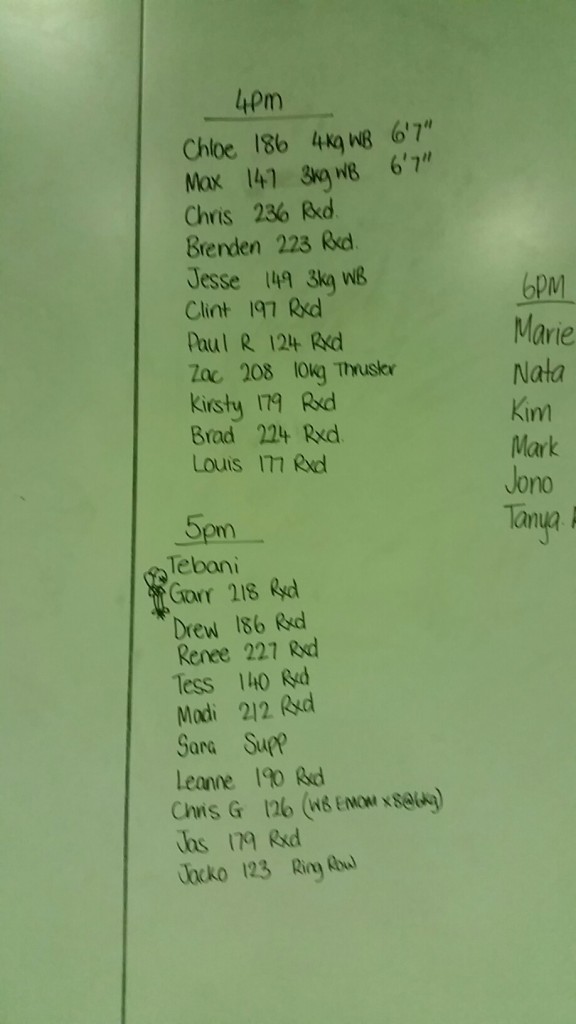 4pm
Chloe 186 4kg WB 6'7"
Max 147 3kg WB 6'7"
Chris 236 Rxd.
Brenden 223 Rxd.
Jesse 149 3kg WB
Clint 197 Rxd
Paul R 124 Rxd
Zac 208 10kg Thruster
Kirsty 179 Rxd
Brad 224 Rxd.
Louis 177 Rxd
5pm
Tebani
Garr 218 Rxd
Drew 186 Rxd
Renee 227 Rxd
Tess 140 Rxd
Madi 212 Rxd
Sara Supp
Leanne 190 Rxd
Chris G 126 (WB EMOM x8@6kg)
Jas 179 Rxd
Jacko 123 Ring Row
6PM
Marie
Nata
Kim
Mark
Jono
Tanya.